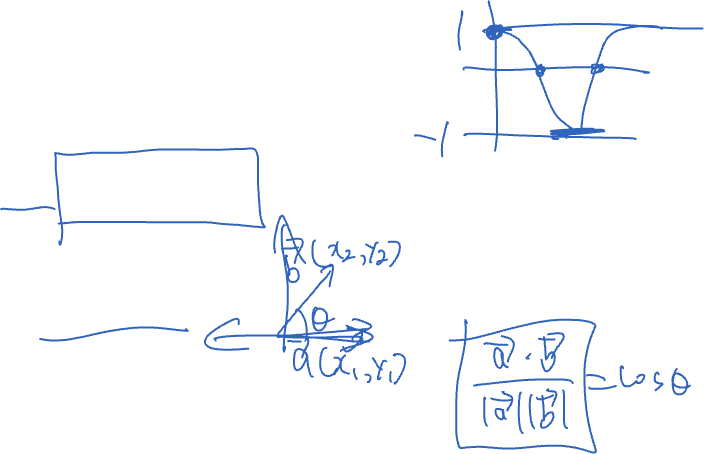 1
-1
b⃗ (x₂,y₂)
θ
a⃗ (x₁,y₁)
a⃗ · b⃗ / |a⃗||b⃗| = cosθ